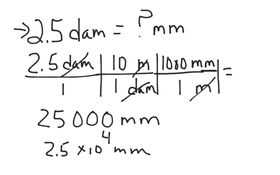 → 2.5 dam = ? mm
2.5 dam | 10 m | 1000 mm | =
1 | 1 dam | 1 m |
25000 mm
2.5 x10⁴ mm